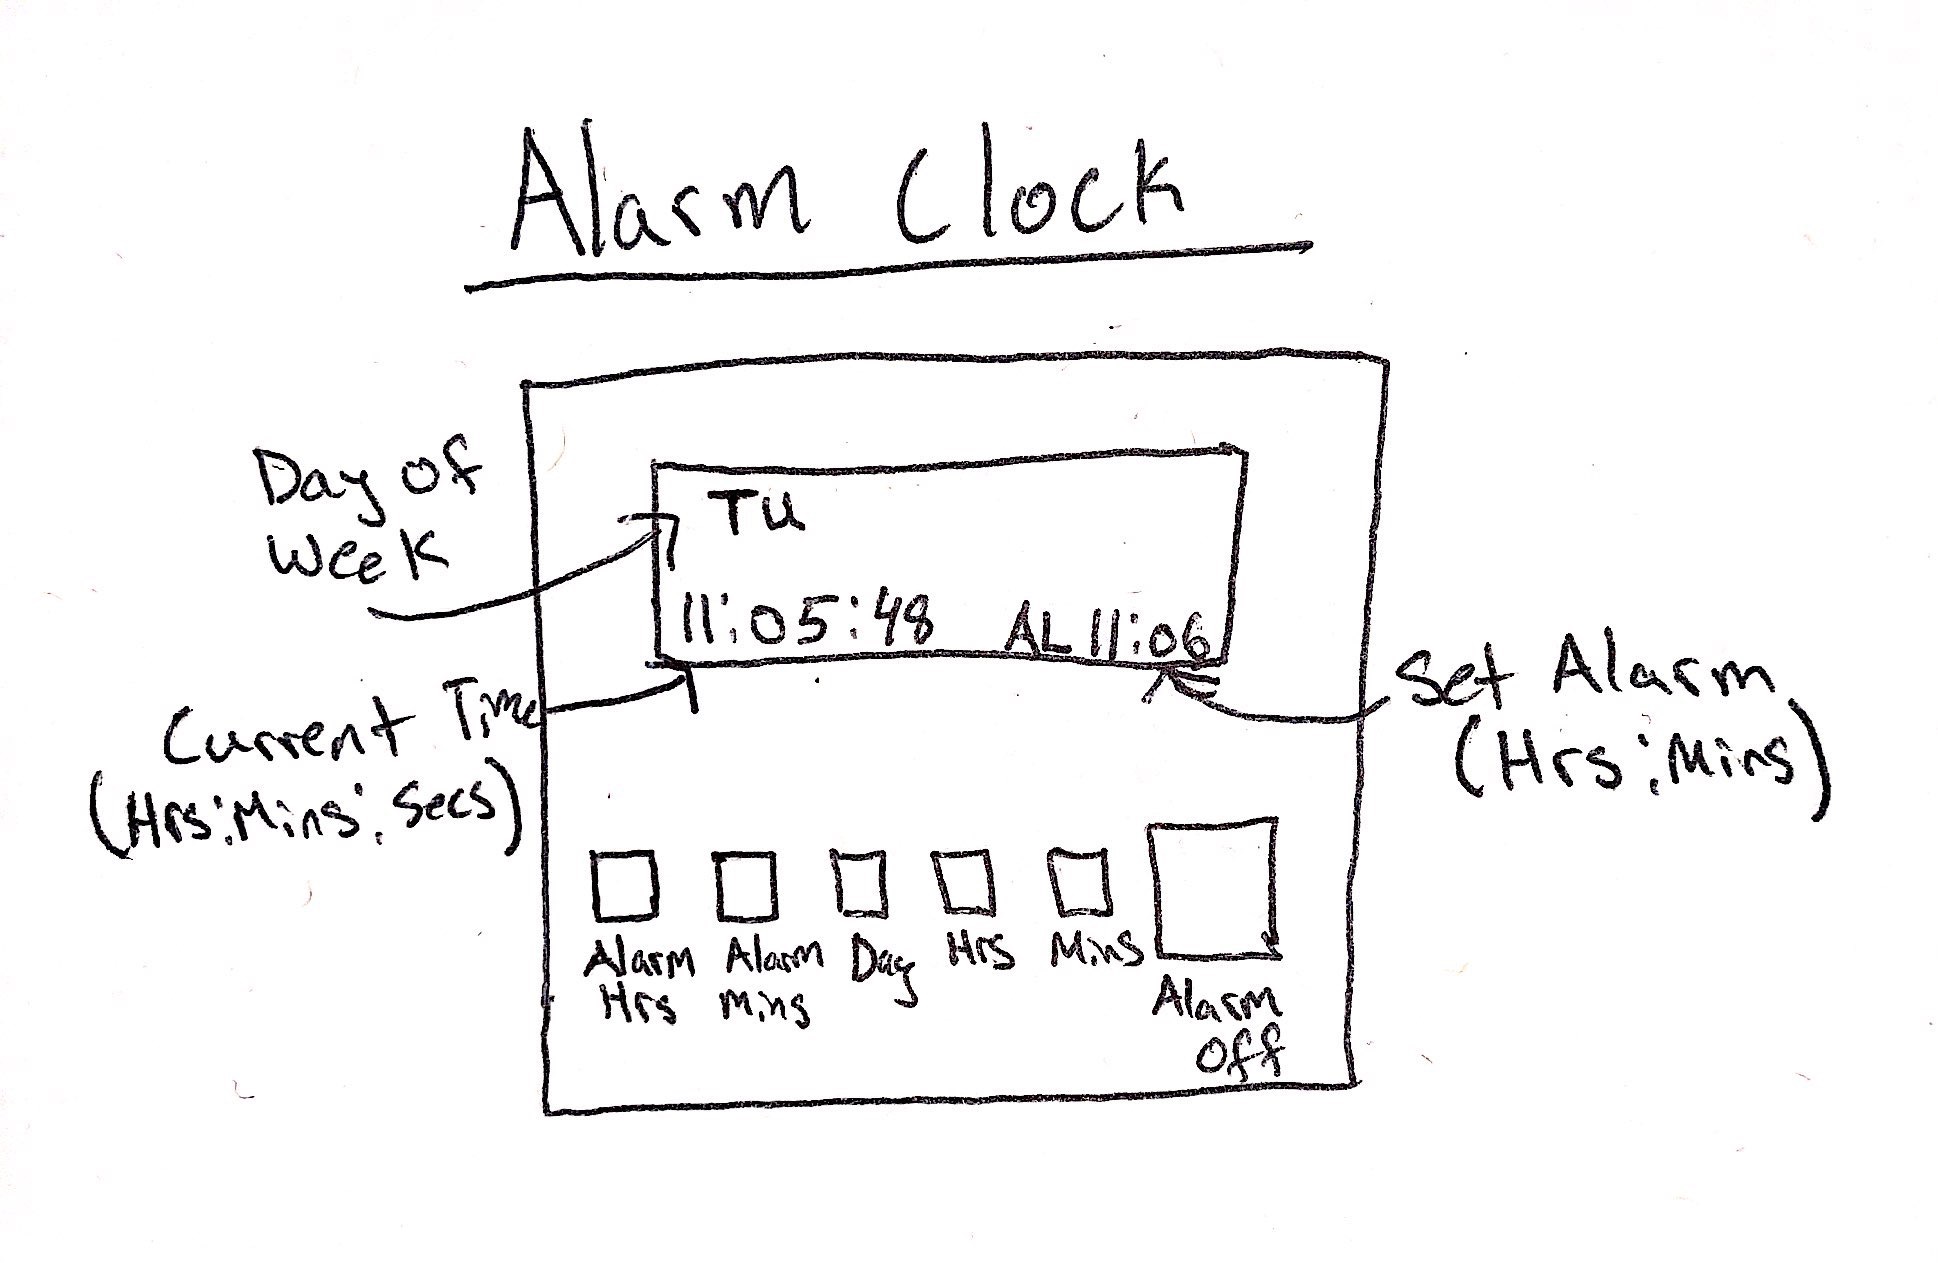 Alarm Clock
Day of
Week
TU
11:05:48 AL 11:06
Current Time
(Hrs:Mins:Secs)
Set Alarm
(Hrs:Mins)
Alarm
Hrs
Alarm
Mins
Day
Hrs
Mins
Alarm
Off